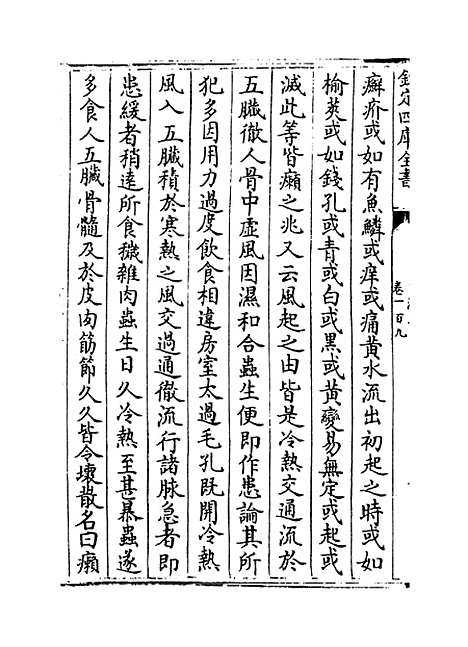 欽定四庫全書
卷一百九
癬疥或如有魚鱗或痒或痛黃水流出初起之時或如
榆莢或如錢孔或青或白或黑或黃變易無定或起或
滅此等皆癩之兆又云風起之由皆是冷熱交通流於
五臟徹人骨中虛風因濕和合蟲生便即作患論其所
犯多因用力過度飲食相違房室太過毛孔既開冷熱
風入五臟積於寒熱之風交過通徹流行諸脉急者即
患緩者稍遠所食穢雜肉蟲生日久冷熱至甚暴蟲遂
多食人五臟骨髓及於皮肉筋節久久皆令壞散名曰癩